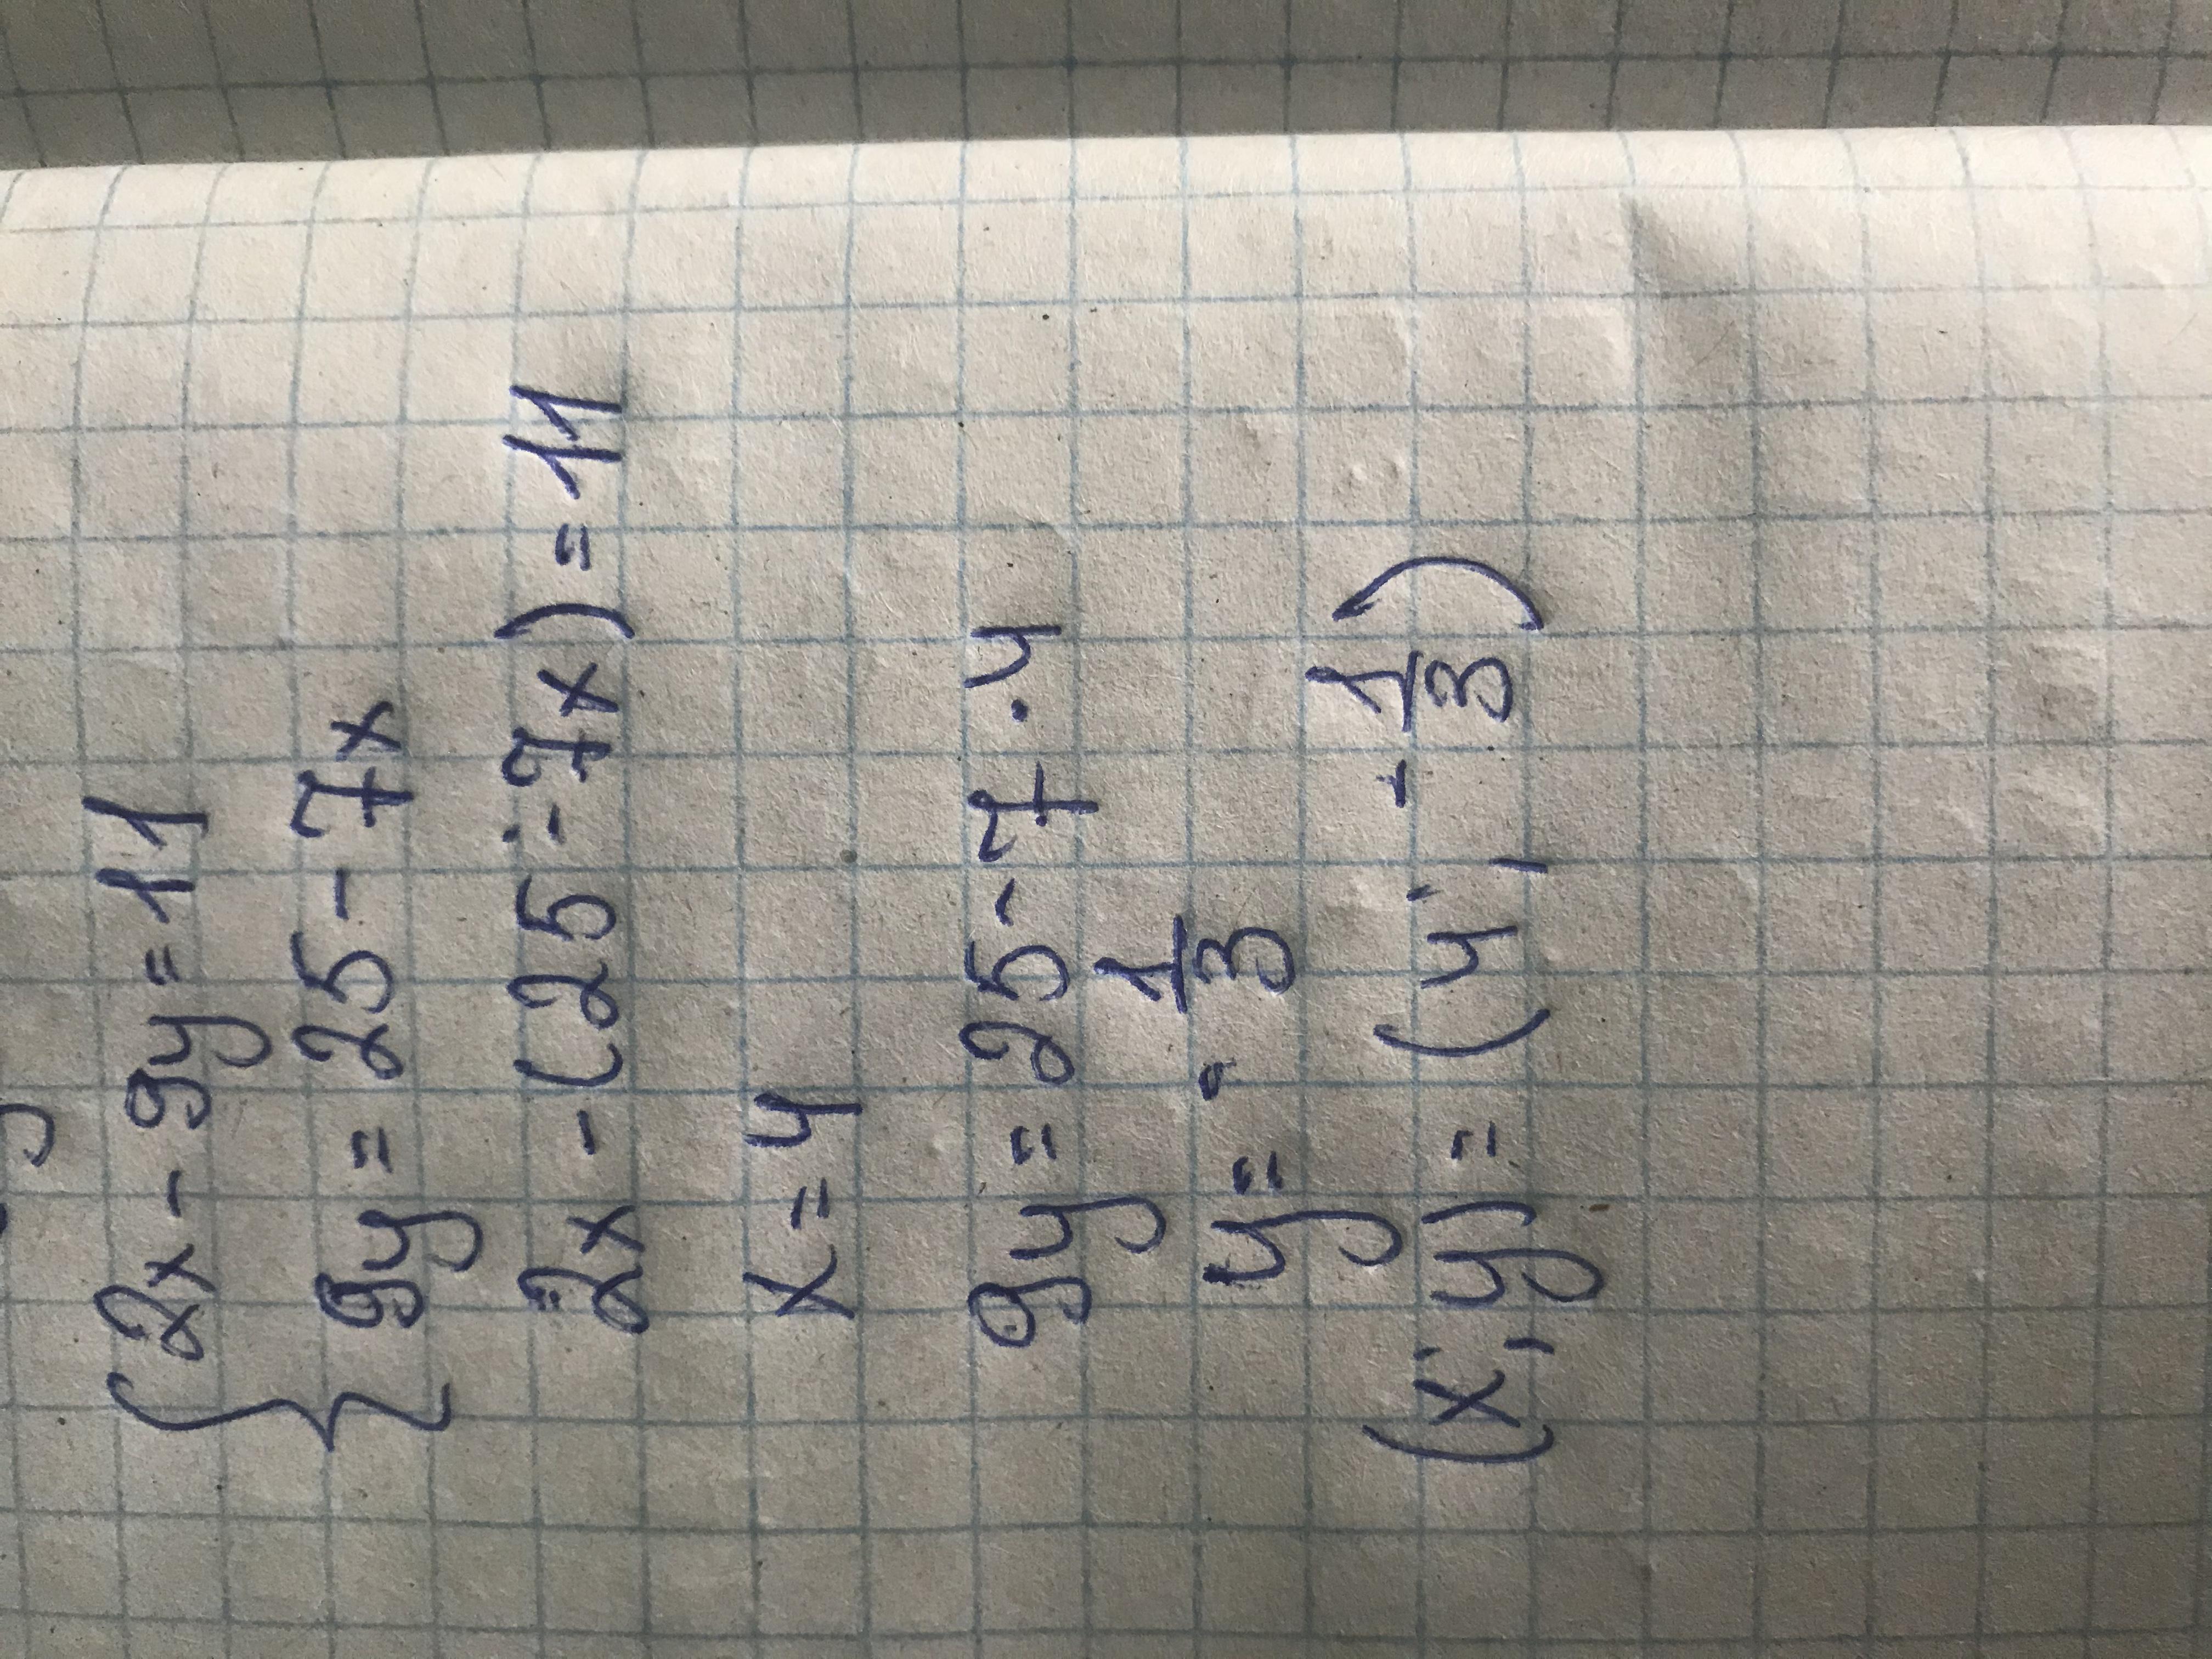 { 2x - 9y = 11
9y = 25 - 7x
2x - (25 - 7x) = 11
x = 4
9y = 25 - 7 · 4
y = - 1/3
(x; y) = (4; - 1/3)